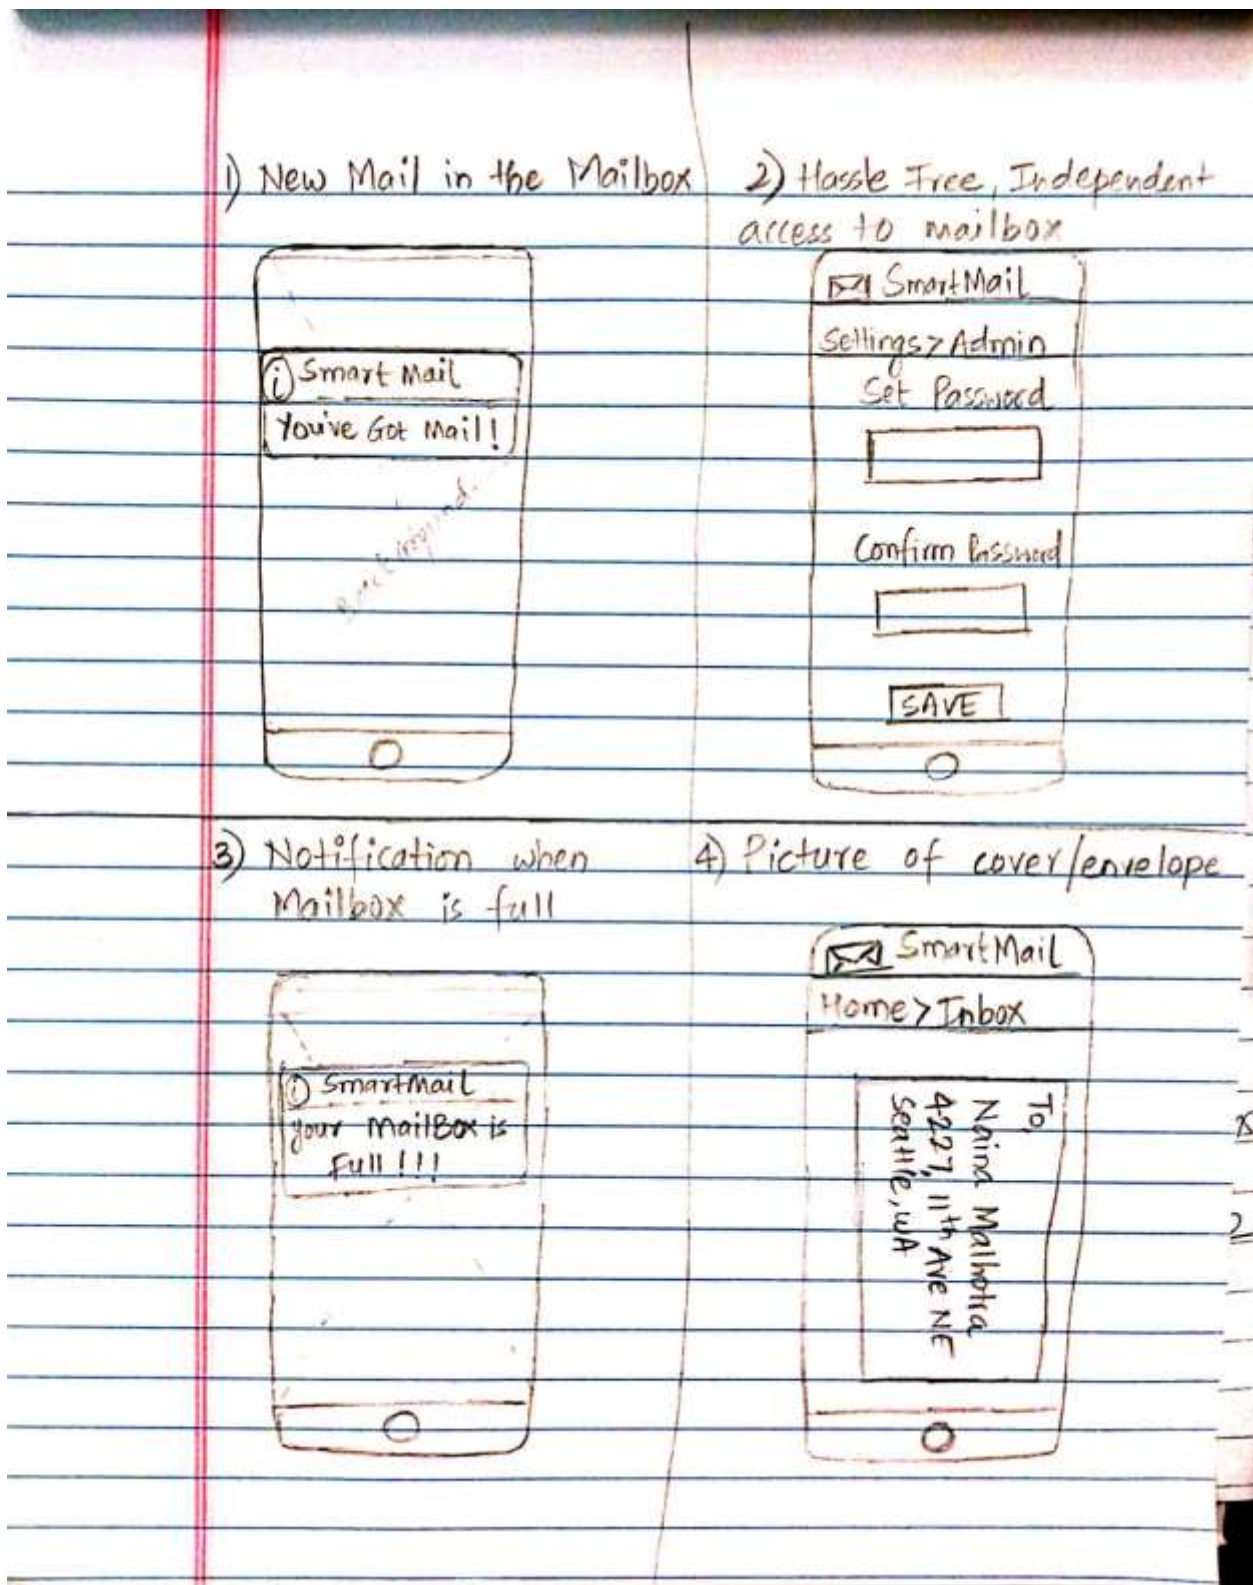 1) New Mail in the Mailbox
i Smart Mail
You've Got Mail!
Background
2) Hassle Free, Independent
access to mailbox
SmartMail
Settings > Admin
Set Password
Confirm Password
SAVE
3) Notification when
Mailbox is full
i SmartMail
your MailBox is
Full !!!
4) Picture of cover/envelope
SmartMail
Home > Inbox
To,
Naina Malhotra
4227, 11th Ave NE
Seattle, WA
2